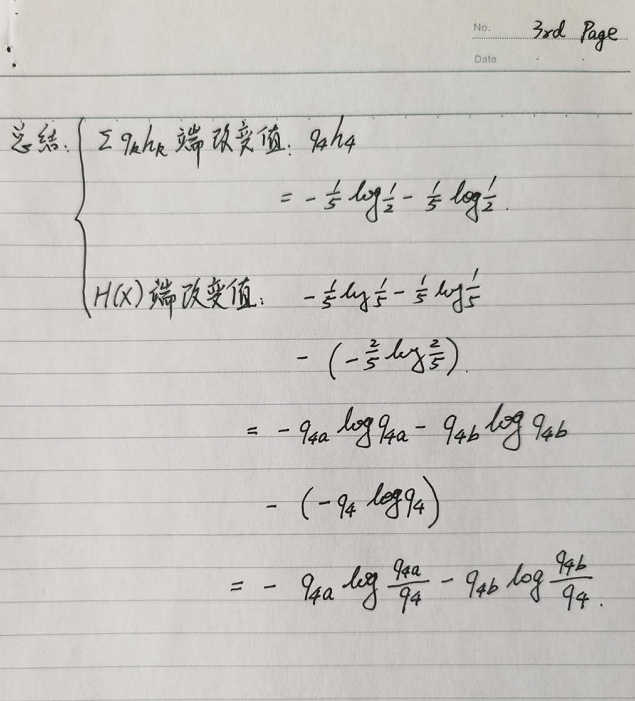 No. 3rd Page
Date
总结: { Σ q_k h_k 端改变值: q_4 h_4
= - 1/5 log 1/2 - 1/5 log 1/2.
H(X) 端改变值: - 1/5 log 1/5 - 1/5 log 1/5
- (- 2/5 log 2/5).
= - q_4a log q_4a - q_4b log q_4b
- (- q_4 log q_4)
= - q_4a log q_4a/q_4 - q_4b log q_4b/q_4.